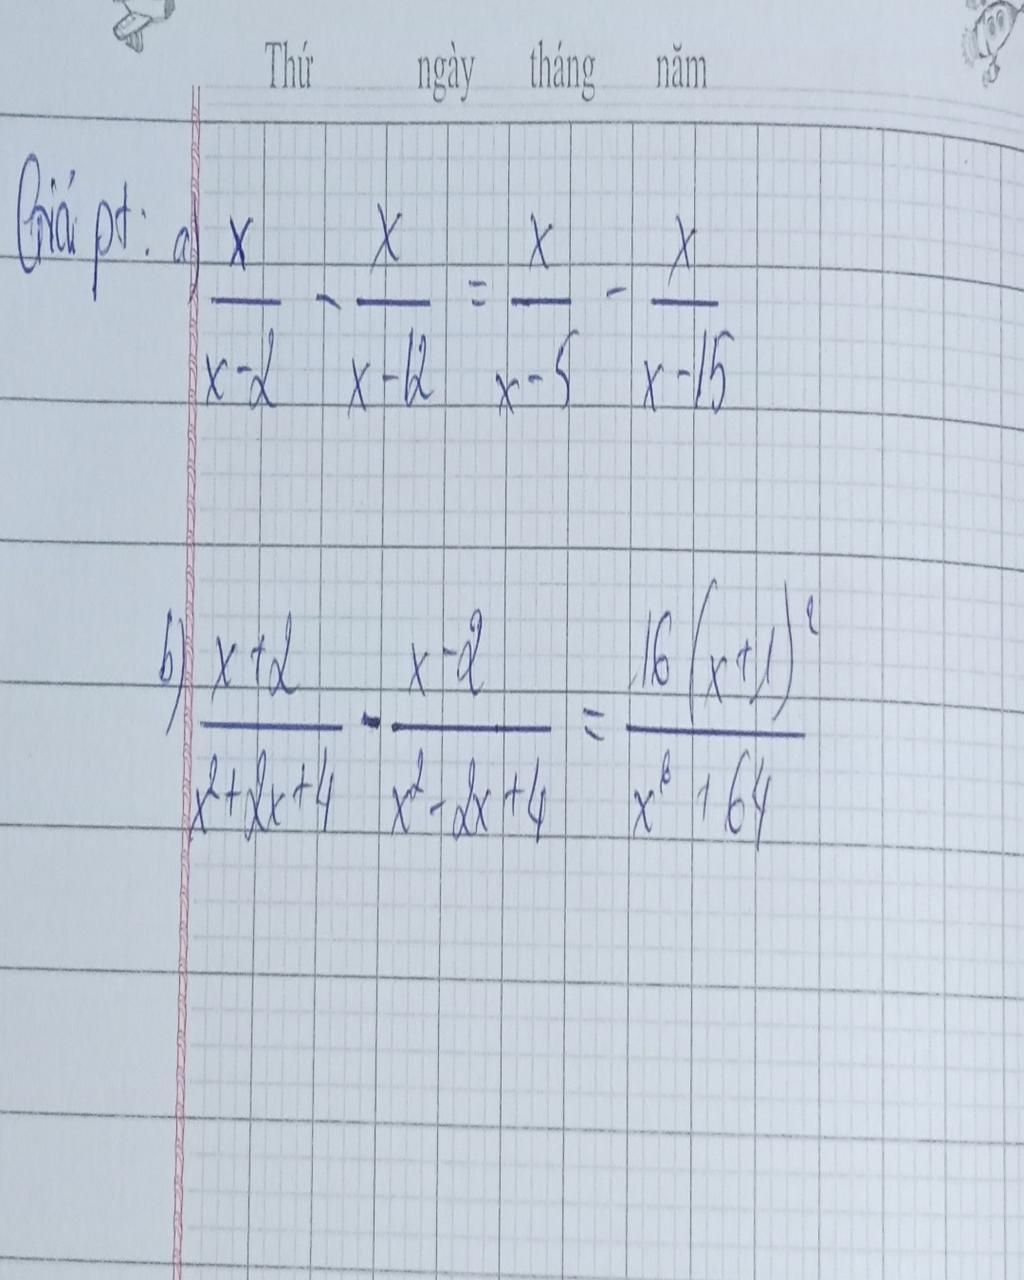 Thứ ngày tháng năm
Giải pt: a) x/(x-2) - x/(x-12) = x/(x-5) - x/(x-15)
b) (x+2)/(x²+2x+4) - (x-2)/(x²-2x+4) = 16(x+1)²/(x⁶+64)